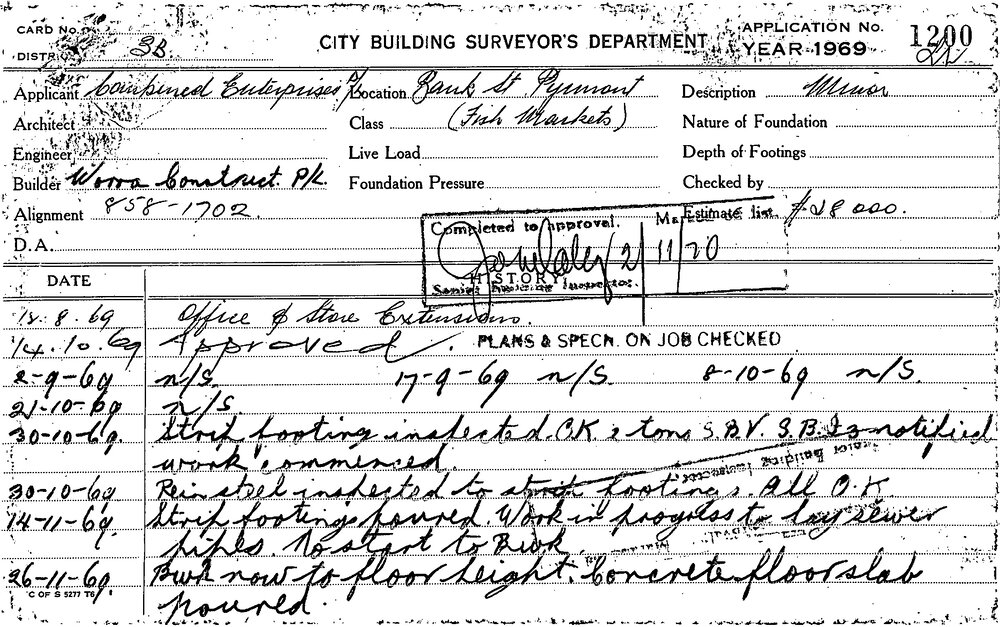 CARD No.
DISTRICT 3B
CITY BUILDING SURVEYOR'S DEPARTMENT
APPLICATION No. 1200
YEAR 1969
Applicant Combined Enterprises P/L
Location Bank St Pyrmont
Description Minor
Architect
Class (Fish Markets)
Nature of Foundation
Engineer
Live Load
Depth of Footings
Builder Worra Construct. P/L.
Foundation Pressure
Checked by
Alignment 858-1702.
Estimate $28 000.
D.A.
Completed to approval.
2/11/70
HISTORY
DATE
18.8.69 Office & Store Extensions.
14.10.69 Approved. PLANS & SPECN. ON JOB CHECKED
2-9-69 n/S. 17-9-69 n/S. 8-10-69 n/S.
21-10-69 n/S.
30-10-69. Strip footing inspected. O.K 2 tons S.B.V. S.B.I notified
work commenced.
30-10-69 Rein steel inspected to strip footings. All O.K
14-11-69. Strip footings poured. Work in progress to lay sewer
pipes. No start to Bwk.
26-11-69. Bwk now to floor height. Concrete floor slab
poured.
C OF S 5277 T6